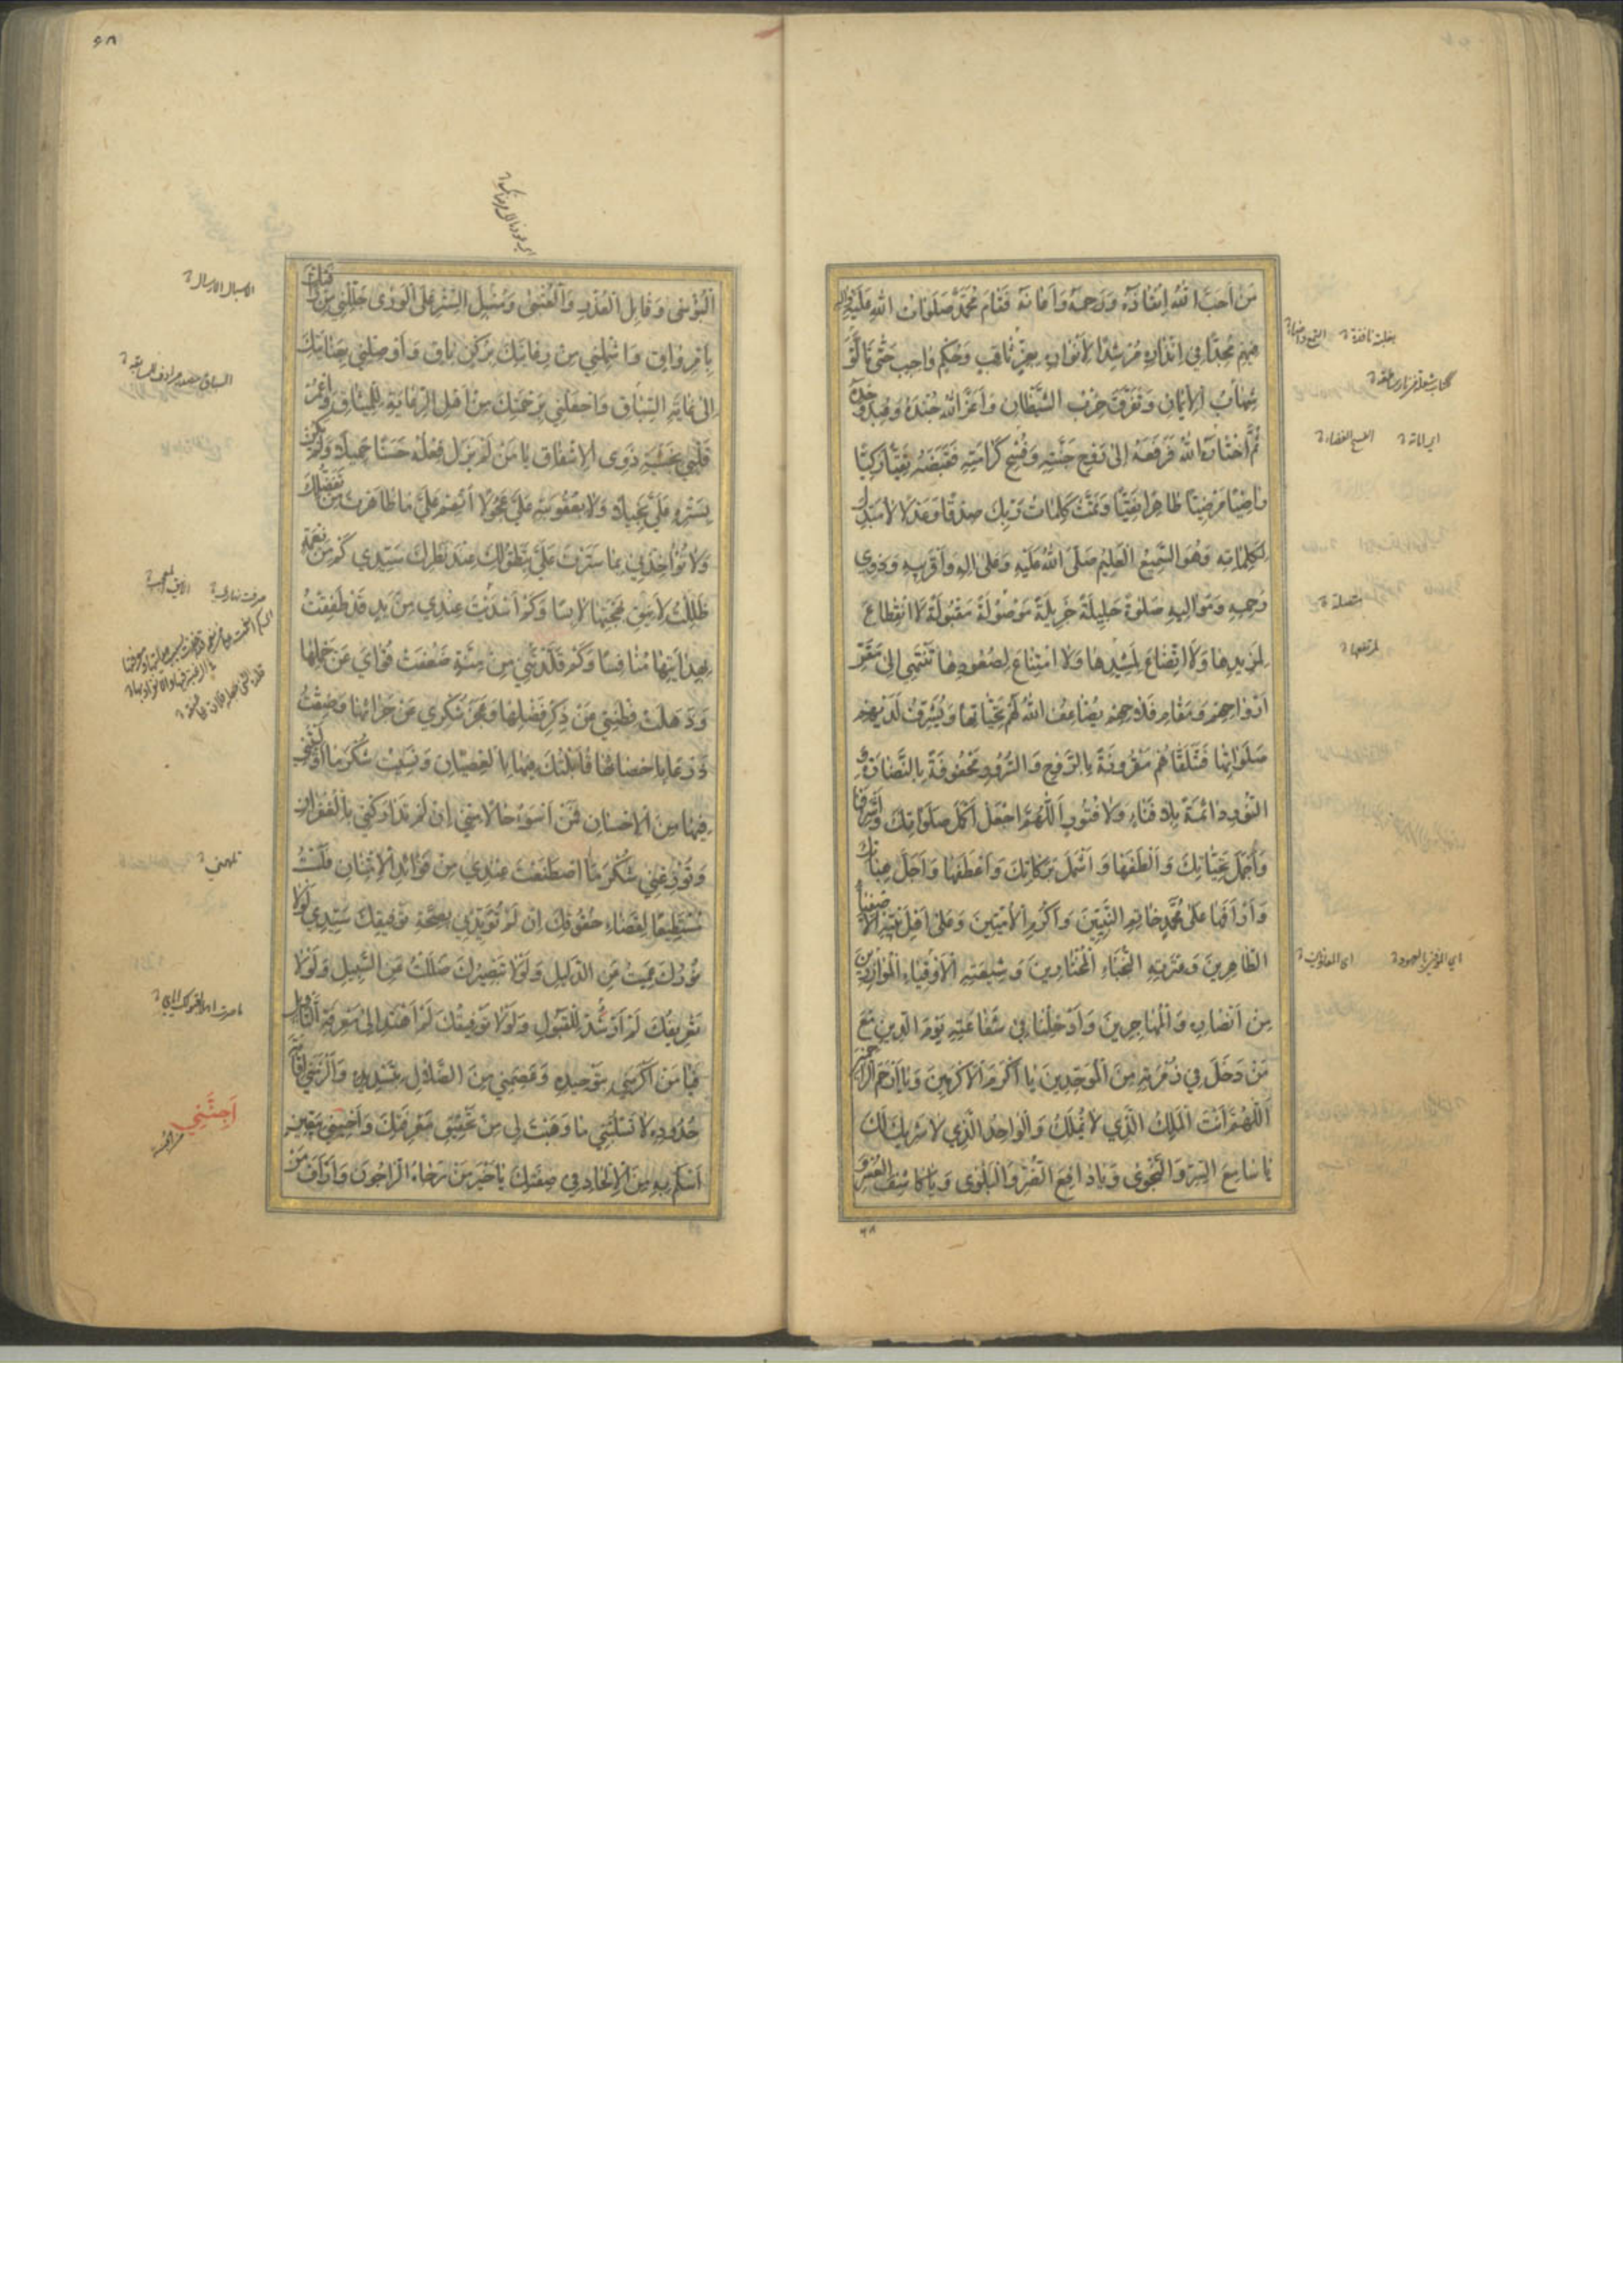 مَنْ اَحَبَّ اللهُ اِنقاذَهُ وَرَحِمَهُ وَاَعانَهُ فَقامَ مُحَمَّدٌ صَلَواتُ اللهِ عَلَيْهِ وَالِهِ
فيهِمْ مُجِدًّا في اِنْذارِهِ مُرْشِدًا لِأَنْوارِهِ بِعِزٍّ ثاقِبٍ وَحُكْمٍ واجِبٍ حَتّى تَاَلَّقَ
شِهابُ الْاِيْمانِ وَتَفَرَّقَ حِزْبُ الشَّيْطانِ وَاَعَزَّ اللهُ جُنْدَهُ وَعُبِدَ وَحْدَهُ
ثُمَّ اخْتارَهُ اللهُ فَرَفَعَهُ اِلى رَوْحِ جَنَّتِهِ وَفَسيحِ كَرامَتِهِ فَقَبَضَهُ تَقِيًّا زَكِيًّا
راضِيًا مَرْضِيًّا طاهِرًا نَقِيًّا وَتَمَّتْ كَلِماتُ رَبِّكَ صِدْقًا وَعَدْلًا لا مُبَدِّلَ
لِكَلِماتِهِ وَهُوَ السَّميعُ الْعَليمُ صَلَّى اللهُ عَلَيْهِ وَعَلى الِهِ وَاَقْرَبيهِ وَذَوى
رَحِمِهِ وَمَواليهِ صَلوةً جَليلَةً جَزيلَةً مَوْصُولَةً مَقْبُولَةً لَا انْقِطاعَ
لِمَزيدِها وَلَا اتِّضاعَ لِمَشيدِها وَلَا امْتِناعَ لِصُعُودِها تَنْتَهي اِلى مَقَرِّ
اَرْواحِهِمْ وَمَقامِ فَلاحِهِمْ يُضاعِفُ اللهُ لَهُمْ تَحِيّاتِها وَيُشَرِّفُ لَدَيْهِمْ
صَلَواتِها فَتَلَقّاهُمْ مَقْرُونَةً بِالرَّوْحِ وَالسُّرُورِ مَحْفُوفَةً بِالنَّضارَةِ وَ
النُّورِ دائِمَةً بِلا فَناءٍ وَلا فُتُورٍ اَللّهُمَّ اجْعَلْ اَكْمَلَ صَلَواتِكَ وَاَشْرَفَها
وَاَجْمَلَ تَحِيّاتِكَ وَاَلْطَفَها وَاَشْمَلَ بَرَكاتِكَ وَاَعْطَفَها وَاَجَلَّ هِباتِكَ
وَاَرْاَفَها عَلى مُحَمَّدٍ خاتِمِ النَّبِيّينَ وَاَكْرَمِ الْأُمّيّينَ وَعَلى اَهْلِ بَيْتِهِ الْاَصْفِياءِ
الطّاهِرينَ وَعِتْرَتِهِ النُّجَباءِ الْمُخْتارينَ وَشيعَتِهِ الْأَوْفِياءِ الْمُوازِرينَ
مِنْ اَنْصارِهِ وَالْمُهاجِرينَ وَاَدْخِلْنا في شَفاعَتِهِ يَوْمَ الدّينِ مَعَ
مَنْ دَخَلَ في زُمْرَتِهِ مِنَ الْمُوَحِّدينَ يا اَكْرَمَ الْأَكْرَمينَ وَيا اَرْحَمَ الرّاحِمينَ
اَللّهُمَّ اَنْتَ الْمَلِكُ الَّذي لا يُمْلَكُ وَالْواحِدُ الَّذي لا شَريكَ لَكَ
يا سامِعَ السِّرِّ وَالنَّجْوى وَيا دافِعَ الضُّرِّ وَالْبَلْوى وَيا كاشِفَ الْعُسْرِ وَ
۶۸
۶۸
الْبُؤْسى وَقابِلَ الْعُذْرِ وَالْعُتْبى وَمُسْبِلَ السِّتْرِ عَلَى الْوَرى جَلِّلْني مِنْ رَاْفَتِكَ
بِاَمْرٍ واقٍ وَاشْمِلْني مِنْ رِعايَتِكَ بِرُكْنٍ باقٍ وَاَوْصِلْني بِعِنايَتِكَ
اِلى غايَةِ السِّباقِ وَاجْعَلْني بِرَحْمَتِكَ مِنْ اَهْلِ الرِّعايَةِ لِلْميثاقِ وَاعْمُرْ
قَلْبي بِخَشْيَةِ ذَوِى الْاِشْفاقِ يا مَنْ لَمْ يَزَلْ فِعْلُهُ حَسَنًا جَميلًا وَلَمْ يَكُنْ
بِسَتْرِهِ عَلَيَّ بَخيلًا وَلا بِعُقُوبَتِهِ عَلَيَّ عَجُولًا اَتْمِمْ عَلَيَّ ما ظاهَرْتَ مِنْ تَفَضُّلِكَ
وَلا تُؤاخِذْني بِما سَتَرْتَ عَلَيَّ بِتَطَوُّلِكَ عِنْدَ نَظَرِكَ سَيِّدي كَمْ مِنْ نِعْمَةٍ
ظَلِلْتُ لِأَنيقِ بَهْجَتِها لابِسًا وَكَمْ اَسْدَيْتَ عِنْدي مِنْ يَدٍ قَدْ طَفِقْتُ
بِهِدايَتِها مُنافِسًا وَكَمْ قَلَّدْتَني مِنْ مِنَّةٍ ضَعُفَتْ قُوايَ عَنْ حَمْلِها
وَذَهَلَتْ فِطْنَتي عَنْ ذِكْرِ فَضْلِها وَعَجَزَ شُكْري عَنْ جَزائِها وَضِقْتُ
ذَرْعًا بِاِحْصائِها قابَلْتُكَ فيها بِالْعِصْيانِ وَنَسيتُ شُكْرَ ما اَوْلَيْتَني
فيها مِنَ الْاِحْسانِ فَمَنْ اَسْوَءُ حالًا مِنّي اِنْ لَمْ تَتَدارَكْني بِالْغُفْرانِ
وَتُوزِعْني شُكْرَ مَا اصْطَنَعْتَ عِنْدي مِنْ فَوائِدِ الْاِمْتِنانِ فَلَسْتُ
مُسْتَطيعًا لِقَضاءِ حُقُوقِكَ اِنْ لَمْ تُؤَيِّدْني بِصُحْبَةِ تَوْفيقِكَ سَيِّدي لَوْلا
نُورُكَ عَميتُ عَنِ الدَّليلِ وَلَوْلا تَبْصيرُكَ ضَلَلْتُ عَنِ السَّبيلِ وَلَوْلا
تَعْريفُكَ لَمْ اُرْشَدْ لِلْقَبُولِ وَلَوْلا تَوْفيقُكَ لَمْ اَهْتَدِ اِلى مَعْرِفَةِ التَّأْويلِ
فَيا مَنْ اَكْرَمَني بِتَوْحيدِهِ وَعَصَمَني مِنَ الضَّلالِ بِتَسْديدِهِ وَاَلْزَمَني اِقامَةَ
حُدُودِهِ لا تَسْلُبْني ما وَهَبْتَ لي مِنْ تَحْقيقِ مَعْرِفَتِكَ وَاَحْيِني بِيَقينٍ
اَسْلَمُ بِهِ مِنَ الْاِلْحادِ في صِفَتِكَ يا خَيْرَ مَنْ رَجاهُ الرّاجُونَ وَاَرْاَفَ مَنْ
اَجِبْني